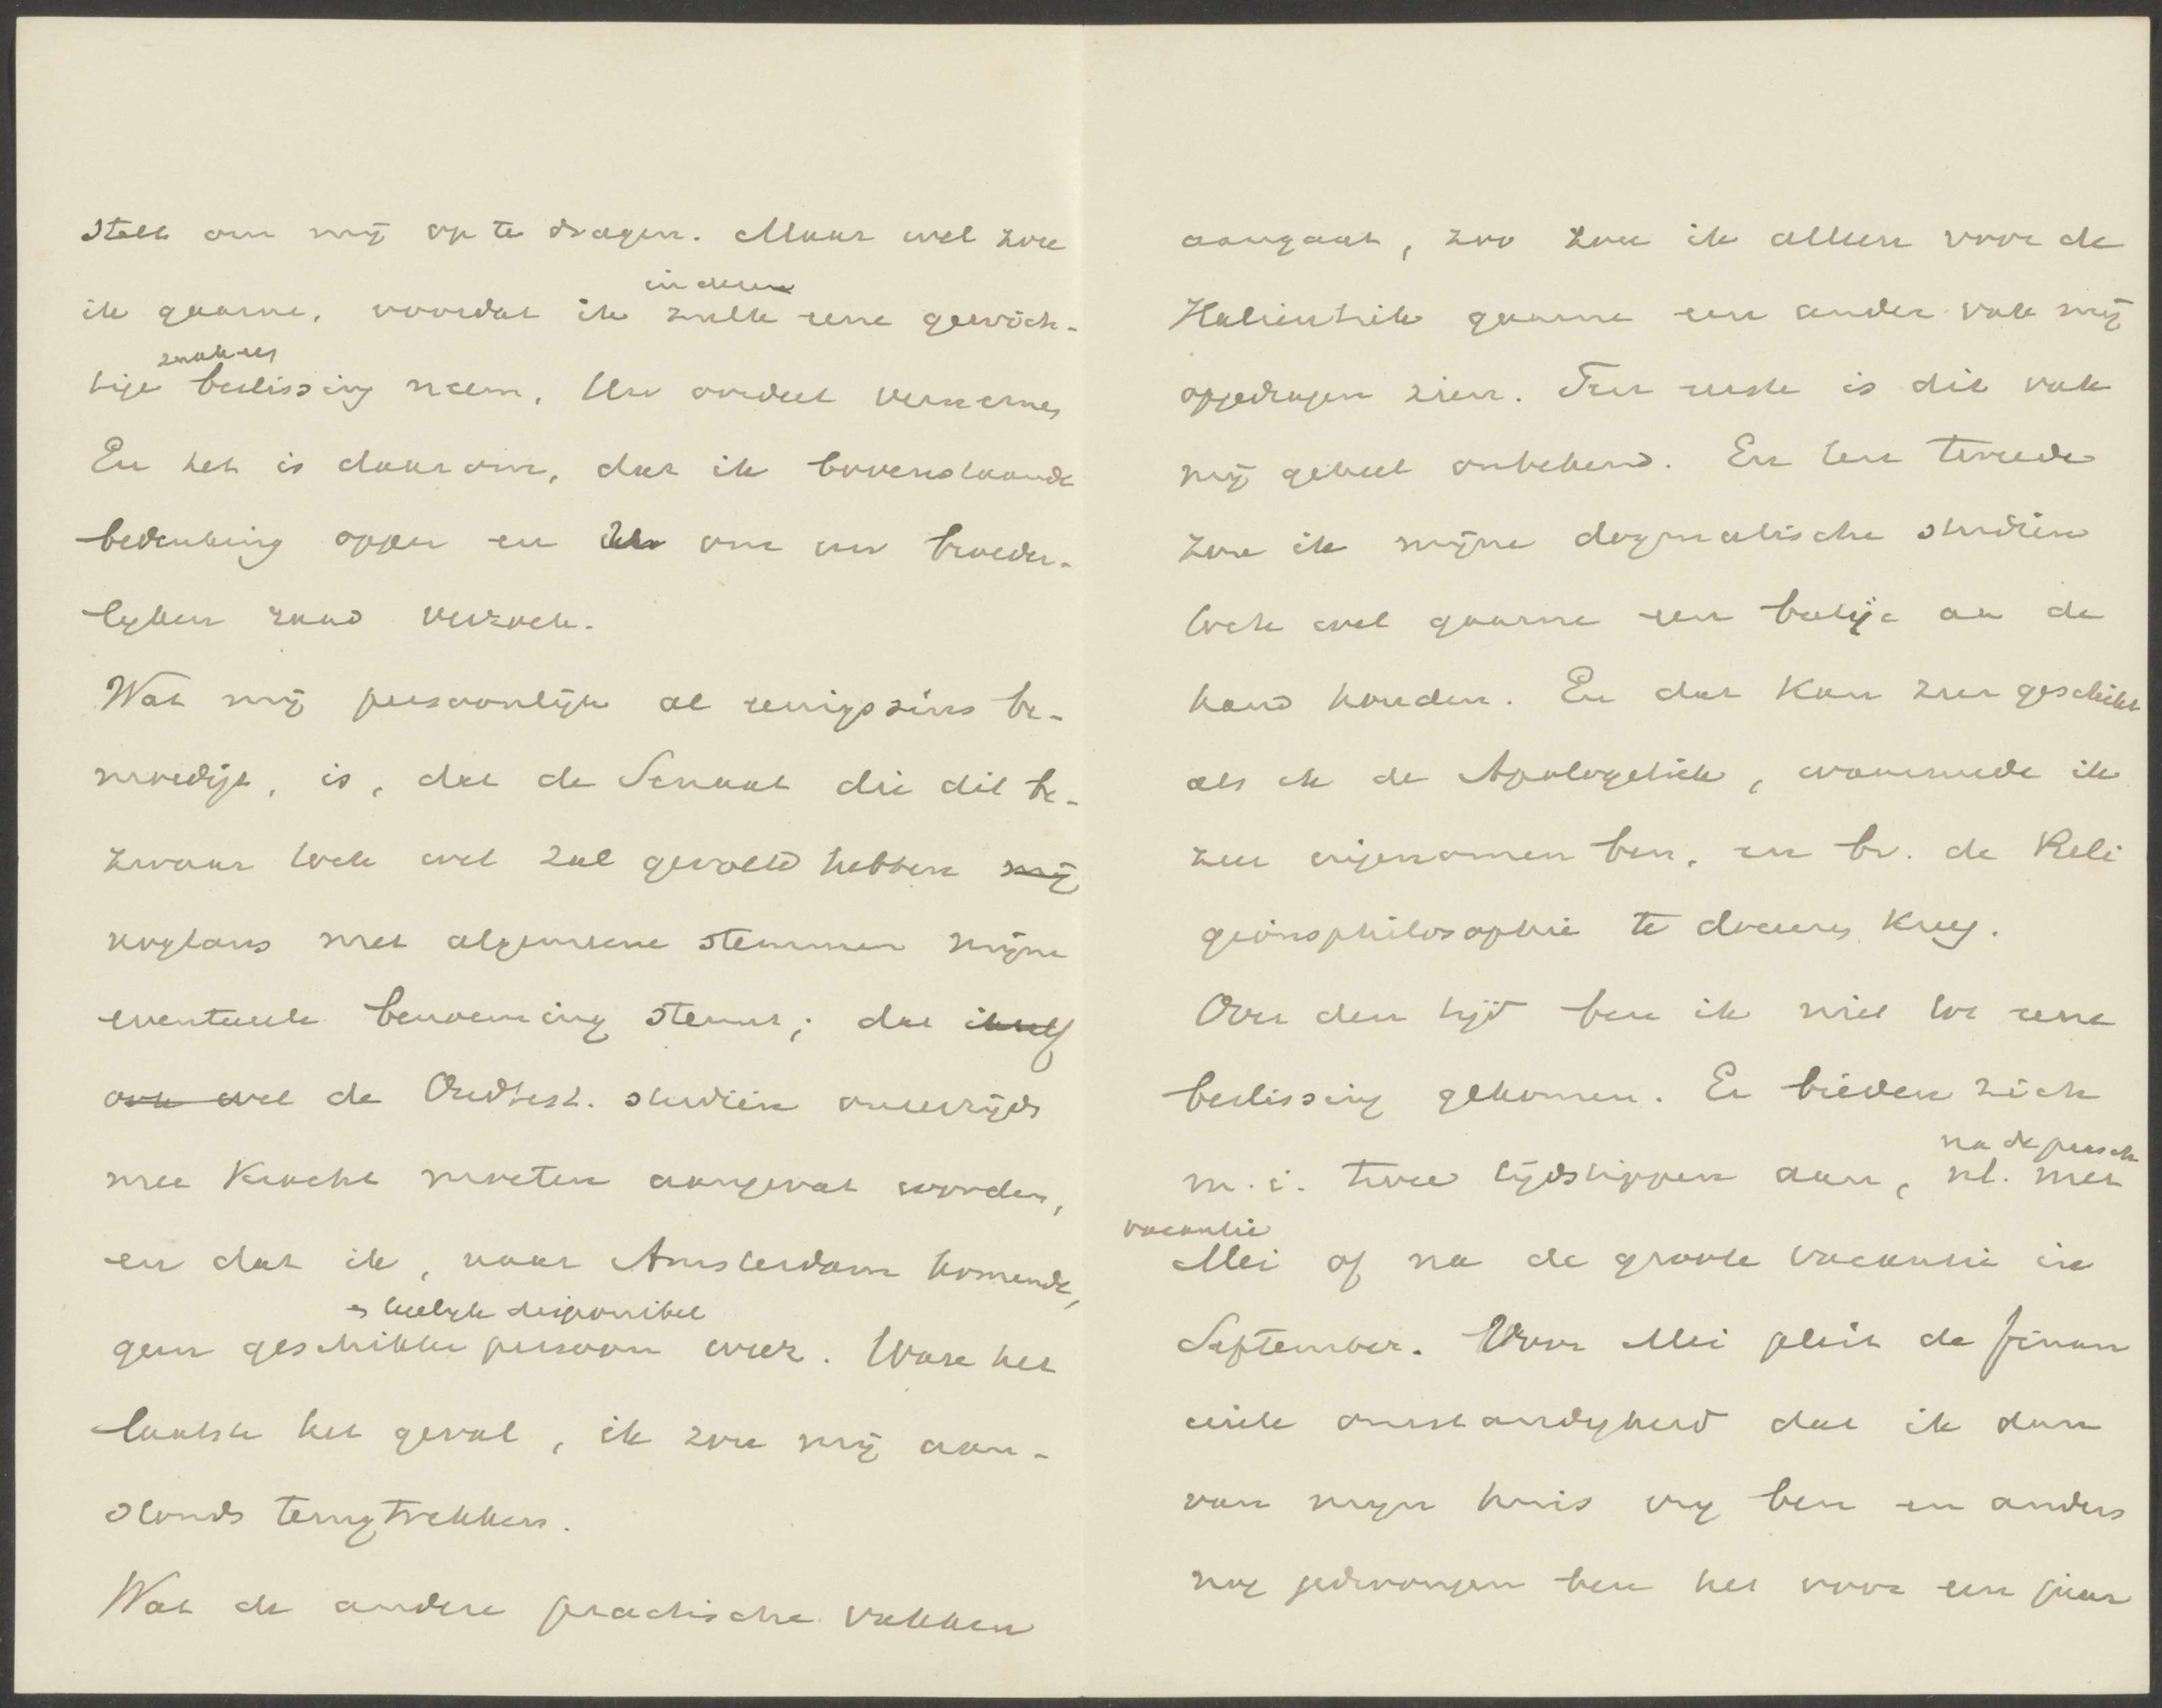 stelt om mij op te dragen. Maar wel zou
in dezen
ik gaarne, voordat ik zulk eene gewich-
tige beslissing neem, Uw oordeel vernemen
En het is daarom, dat ik bovenstaande
bedenking opper en Uw om uw broeder-
lijken raad verzoek.
Wat mij persoonlijk al eenigszins be-
moedigt, is, dat de Senaat die dit be-
zwaar toch wel zal gevoeld hebben mij
nogtans met algemeene stemmen mijne
eventueele benoeming steunt; dat ikzelf
ook wel de Oudtest. studiën onverwijld
met kracht moeten aangevat worden,
en dat ik, naar Amsterdam komende,
disponibel
geen geschikter persoon weet. Ware het
laatste het geval, ik zou mij aan-
stonds terugtrekken.
Wat de andere practische vakken
aangaat, zoo zou ik alleen voor de
Halieutiek gaarne een ander vak mij
opgedragen zien. Ten eerste is dit vak
mij geheel onbekend. En ten tweede
zou ik mijne dogmatische studiën
toch wel gaarne een beetje aan de
hand houden. En dat kan zeer geschikt
als ik de Apologetiek, waarmede ik
zeer ingenomen ben, en bv. de Reli
gionsphilosophie te doceeren kreeg.
Over den tijd ben ik niet tot eene
beslissing gekomen. Er bieden zich
na de paasch
m.i. twee tijdstippen aan, nl. met
vacantie
Mei of na de groote vacantie in
September. Voor Mei pleit de finan
cieele omstandigheid dat ik dan
van mijn huis vrij ben en anders
nog gedwongen ben het voor een jaar